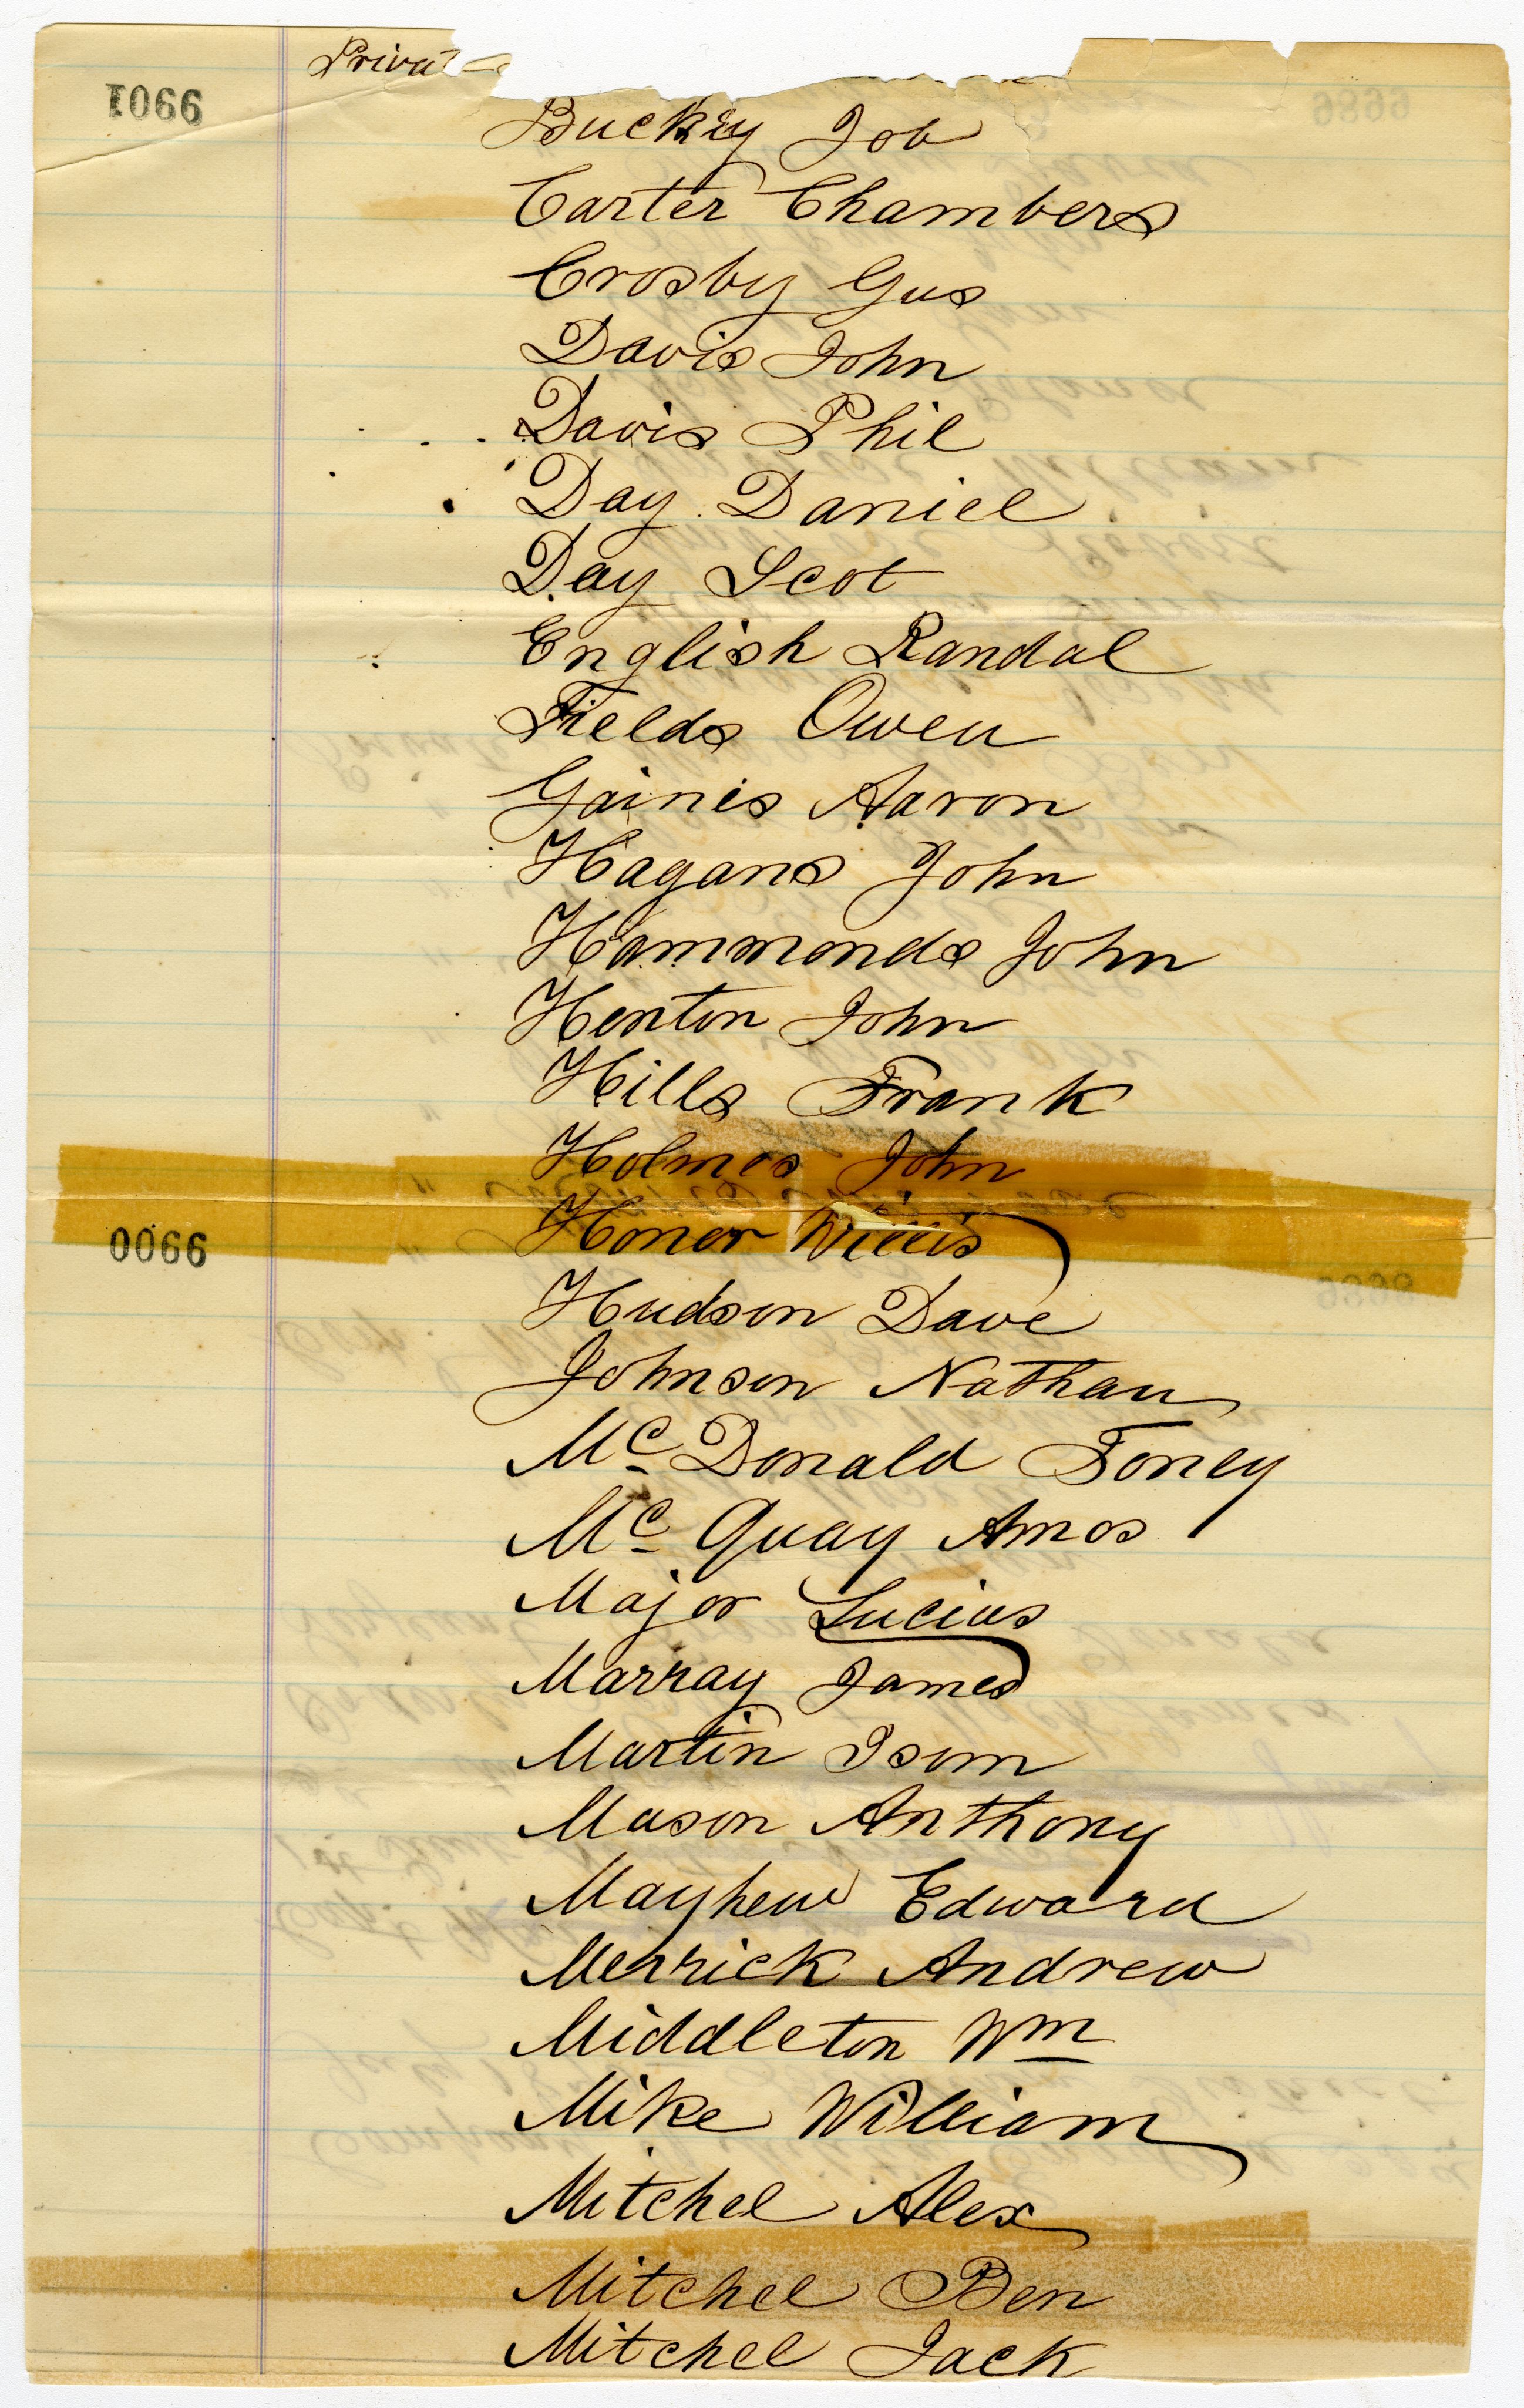 Private
1066
Buckey Job
Carter Chambers
Crosby Gus
Davis John
Davis Phil
Day Daniel
Day Scot
English Randal
Fields Owen
Gaines Aaron
Hagans John
Hammonds John
Henton John
Hills Frank
Holmes John
Honor Willis
0066
Hudson Dave
Johnson Nathan
Mc Donald Toney
Mc Quay Amos
Major Lucius
Marray James
Martin Isom
Mason Anthony
Mayhew Edward
Merrick Andrew
Middleton Wm
Mike William
Mitchel Alex
Mitchel Ben
Mitchel Jack